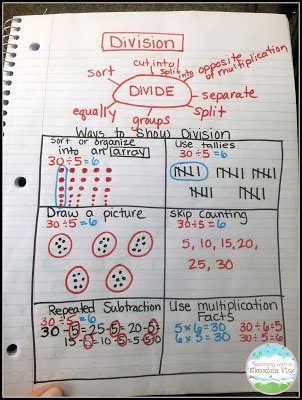 Division
cut into
sort
split into
opposite of multiplication
DIVIDE
separate
equally
groups
split
Ways to show Division
Sort or organize
into an array
30÷5=6
Use tallies
30÷5=6
Draw a picture
30÷5=6
Skip counting
30÷5=6
5, 10, 15, 20,
25, 30
Repeated Subtraction
30÷5=6
30-5=25-5=20-5=
15-5=10-5=5-5=0
Use multiplication
Facts
5x6=30 30÷6=5
6x5=30 30÷5=6
Teaching with a
Mountain View